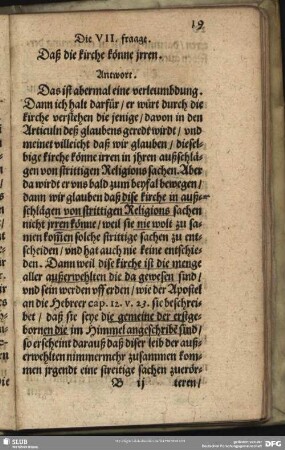 19
Die VII. fraage.
Daß die kirche könne jrren.
Antwort.
Das ist abermal eine verleumbdung.
Dann ich halt darfür/ er würt durch die
kirche verstehen die jenige/ davon in den
Articuln deß glaubens geredt wirdt/ vnd
meinet villeicht daß wir glauben/ diesel-
bige kirche könne irren in jhren außschlä-
gen von strittigen Religions sachen. Aber
da wirdt er vns bald zum beyfal bewegen/
dann wir glauben daß dise kirche in auß-
schlägen von strittigen Religions sachen
nicht jrren könne/ weil sie nie wolt zu sa-
men kom̃en solche strittige sachen zu ent-
scheiden/ vnd hat auch nie keine entschi-
den. Dann weil dise kirche ist die menge
aller außerwehlten die da gewesen sind/
vnd sein werden vff erden/ wie der Apostel
an die Hebreer cap. 12. v. 23. sie beschrei-
bet/ daß sie seye die gemeine der erstge-
bornen die im Himmel angeschribē sind/
so erscheint darauß daß diser leib der auß-
erwehlten nimmermehr zusammen kom-
men jrgendt eine streitige sachen zuerör-
B ij teren/
SLUB
DFG